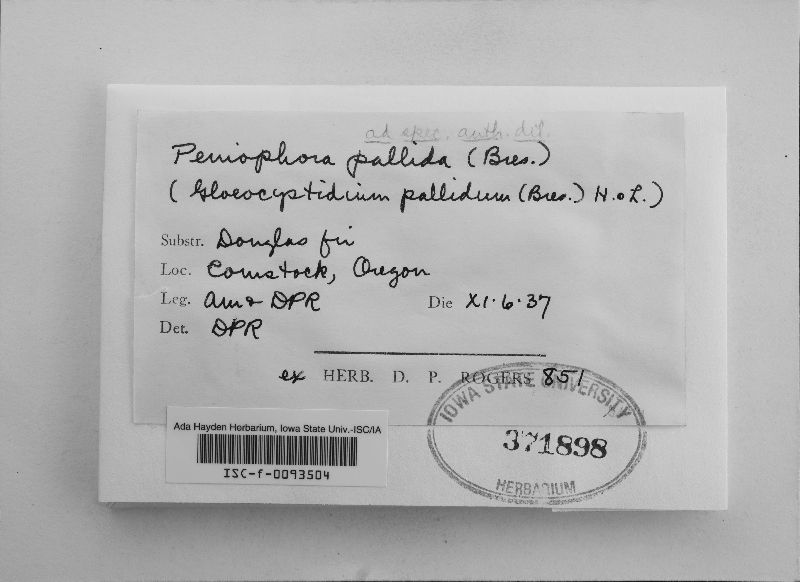 ad spec. auth. dit.
Peniophora pallida (Bres.)
(Gloeocystidium pallidum (Bres.) H. & L.)
Substr. Douglas fir
Loc. Comstock, Oregon
Leg. AM & DPR Die XI.6.37
Det. DPR
ex HERB. D. P. ROGERS 851
IOWA STATE UNIVERSITY
371898
HERBARIUM
Ada Hayden Herbarium, Iowa State Univ.-ISC/IA
ISC-f-0093504